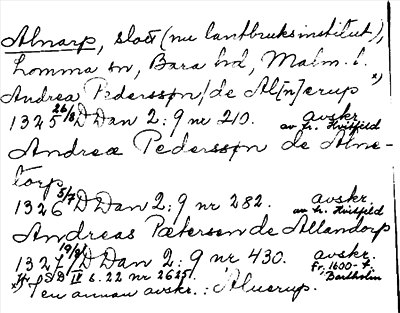 Alnarp, slott (nu lantbruksinstitut),
Lomma sn, Bara hd, Malm. l.
Andrea Pedersson/de Al[n]erup x)
1325 26/8 DDan 2:9 nr 210. avskr.
av fr. Hvitfeld
Andreæ Pedersson de Alne-
torp
1326 5/7 DDan 2:9 nr 282. avskr.
av fr. Hvitfeld
Andreas Pætersen de Allandorp
1327 19/8 DDan 2:9 nr 430. avskr.
fr. 1600-t.
Bartholin
nr 2625.
x) I en annan avskr.: Aluerup.